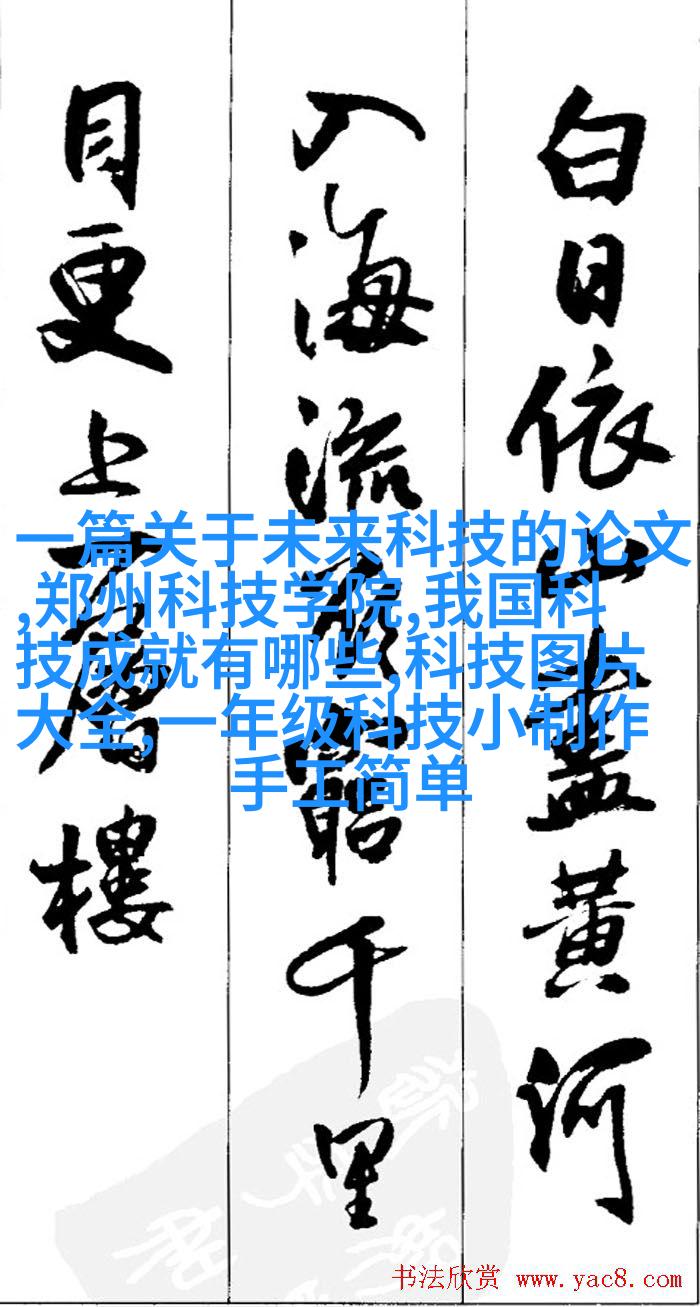 白日依山盡黄河
入海流欲窮千里
目更上一層樓
一篇关于未来科技的论文
,郑州科技学院,我国科
技成就有哪些,科技图片
大全,一年级科技小制作
手工简单
书法欣赏 www.yac8.com